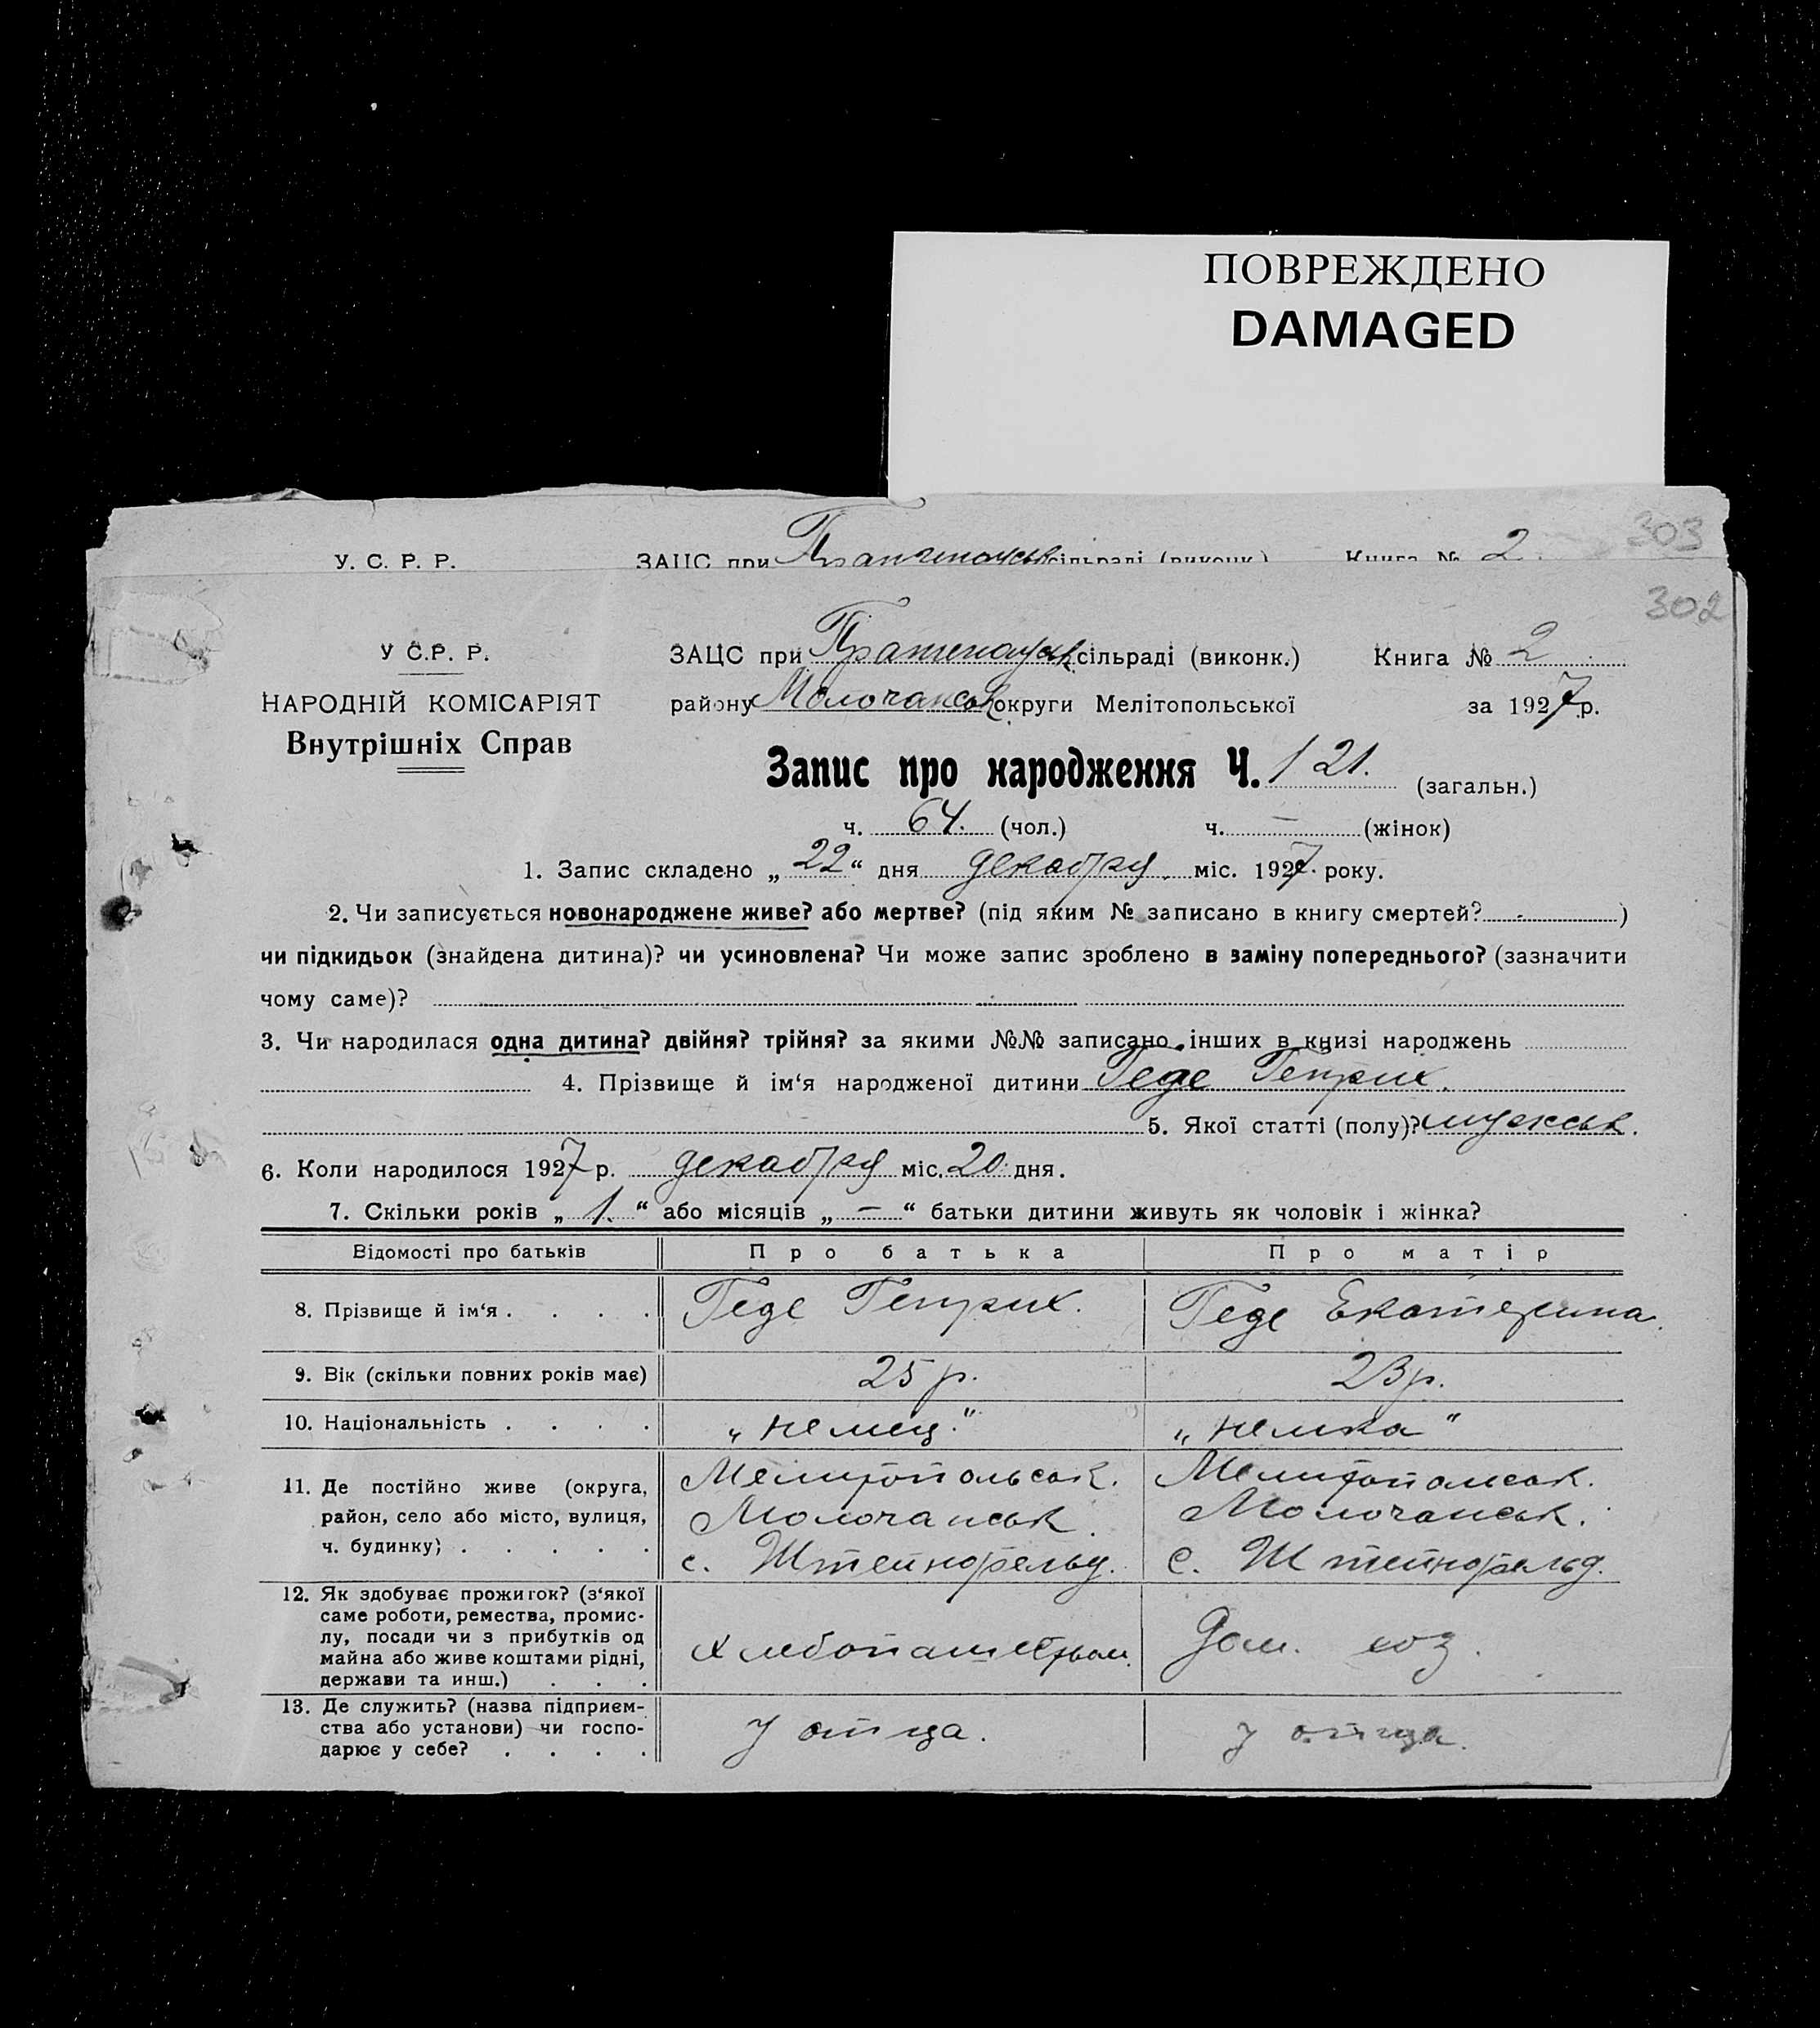 ПОВРЕЖДЕНО
DAMAGED
303
У. С. Р. Р. ЗАЦС при сільраді (виконк.) Книга № 2
302
У С.Р. Р. ЗАЦС при сільраді (виконк.) Книга № 2
НАРОДНІЙ КОМІСАРІЯТ району Молочанськ округи Мелітопольської за 1927 р.
Внутрішніх Справ
Запис про народження Ч. 121. (загальн.)
ч. 64. (чол.) ч. — (жінок)
1. Запис складено „22“ дня декабря міс. 1927. року.
2. Чи записується новонароджене живе? або мертве? (під яким № записано в книгу смертей? - )
чи підкидьок (знайдена дитина)? чи усиновлена? Чи може запис зроблено в заміну попереднього? (зазначити
чому саме)?
3. Чи народилася одна дитина? двійня? трійня? за якими №№ записано інших в книзі народжень
4. Прізвище й ім‘я народженої дитини Геде Генрих.
5. Якої статті (полу)? мужськ.
6. Коли народилося 1927 р. декабря міс. 20 дня.
7. Скільки років „1.“ або місяців „—“ батьки дитини живуть як чоловік і жінка?
Відомості про батьків Про батька Про матір
8. Прізвище й ім‘я . . . . Геде Генрих. Геде Екатерина.
9. Вік (скільки повних років має) 25 р. 23 р.
10. Національність . . . . „немец.“ „немка“
11. Де постійно живе (округа, Мелитопольськ. Мелитопольськ.
район, село або місто, вулиця, Молочанськ. Молочанськ.
ч. будинку) . . . . . с. Штейнфельд. с. Штейнфельд.
12. Як здобуває прожиток? (з‘якої
саме роботи, ремества, промис-
лу, посади чи з прибутків од
майна або живе коштами рідні, Хлебопашеством. Дом. хоз.
держави та инш.) . . .
13. Де служить? (назва підприєм-
ства або установи) чи госпо- у отца. у отца.
дарює у себе? . . . .